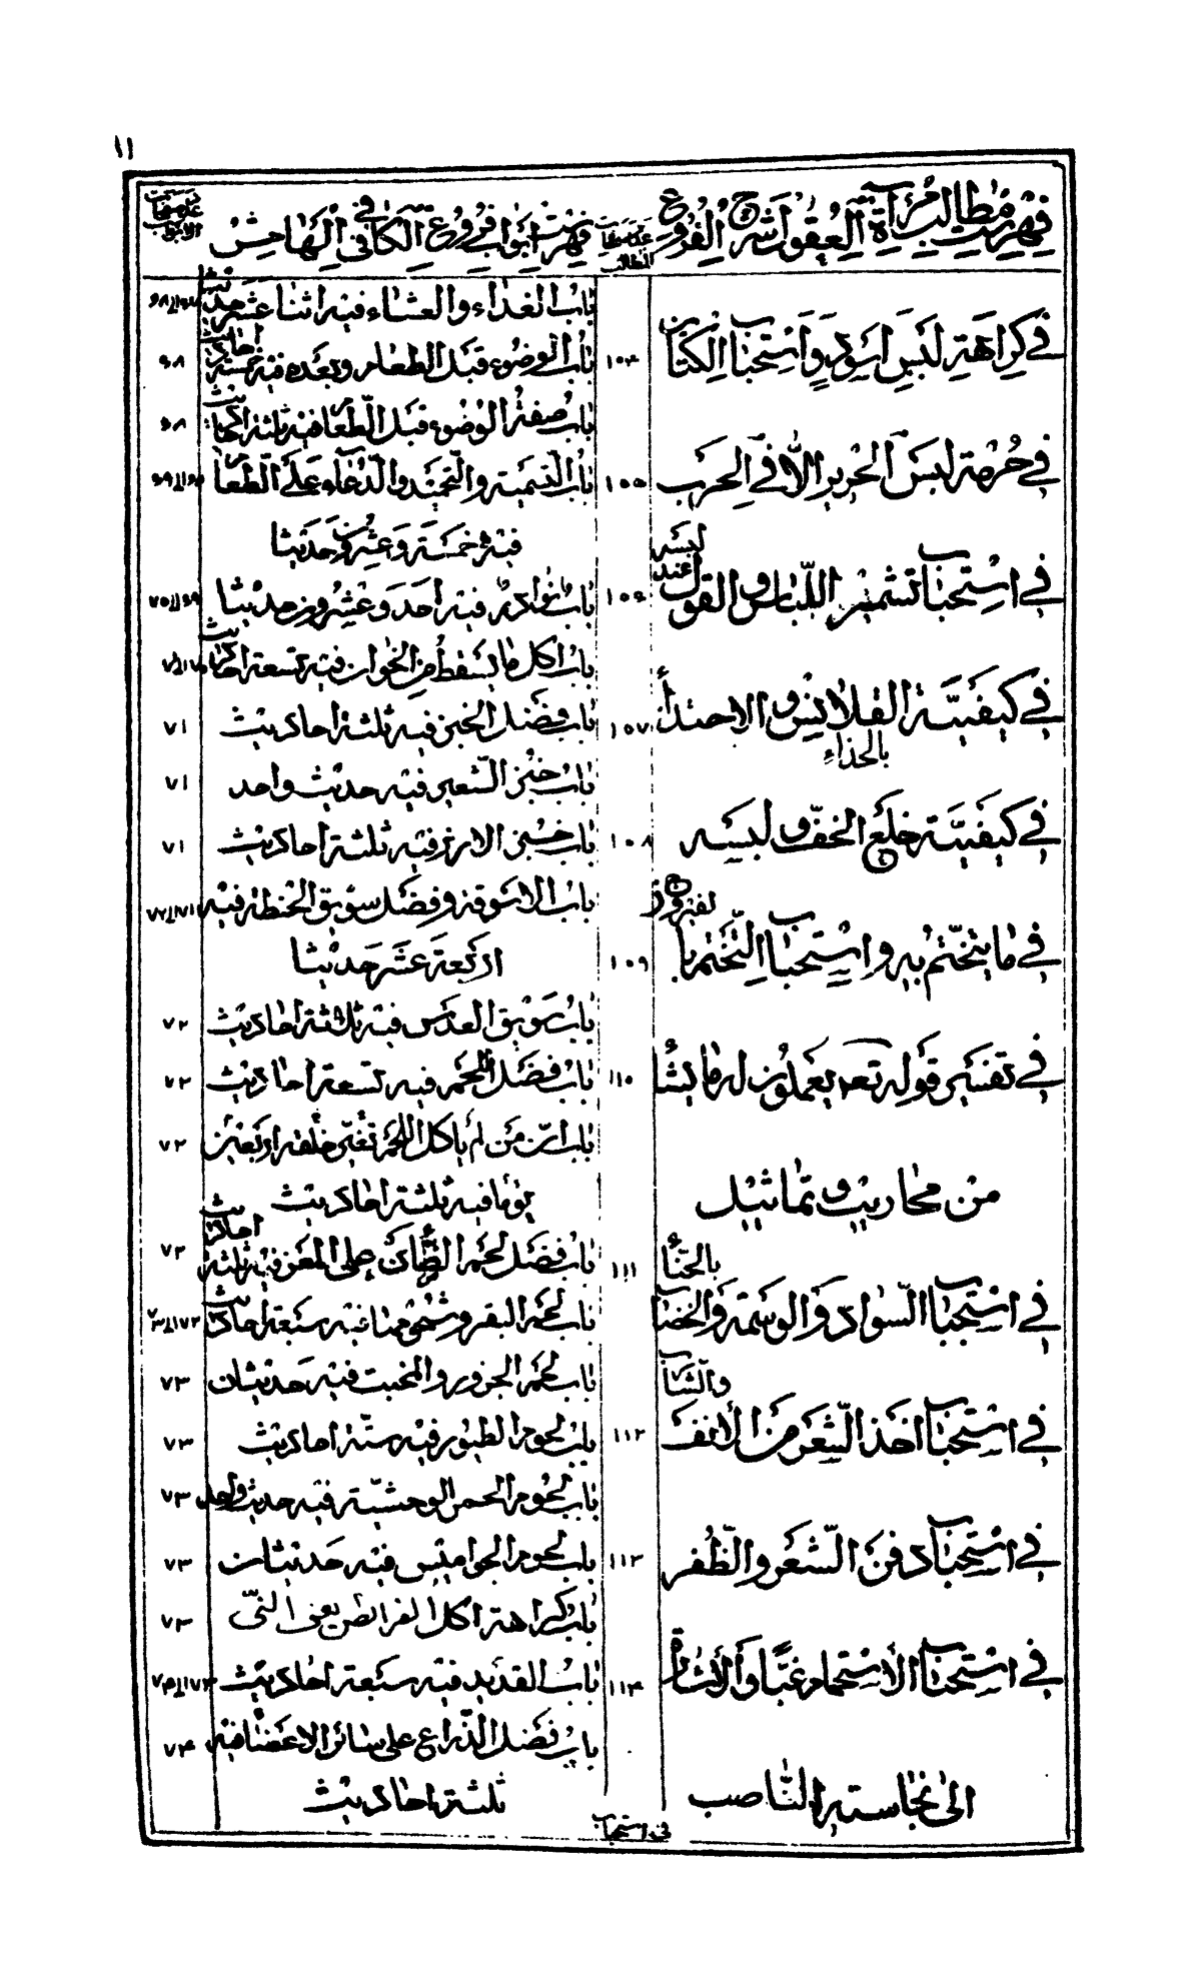 ١١
فهرست مطالب مرآة العقول شرح الفروع
عدد صفحات المطالب
فهرست ابواب فروع الكافى فى الهامش
عدد صفحات الابواب
في كراهة لبس اسود واستحباب الكتان ١٠٤
في حرمة لبس الحرير الّا في الحرب ١٠٥
في استحباب تشمير اللّباس والقول عند لبسه ١٠٦
في كيفيّة القلانيس والاحتذاء بالحذاء ١٠٧
في كيفيّة خلع الخفّ ولبسه ١٠٨
في ما يتختّم به واستحباب التّختّم بالفيروزج ١٠٩
في تفسير قوله تعه يعملون له ما يشاء ١١٠
من محاريب وتماثيل
في استحباب السّواد والوسمة والخضاب بالحنّاء ١١١
في استحباب اخذ الشّعر من الأنف والشّارب ١١٢
في استحباب دفن الشّعر والظّفر ١١٣
في استحباب الأستحمام غبّا والأشارة ١١٤
الى نجاسته الناصب
باب الغداء والعشاء فيه اثنا عشر حديث
باب الوضوء قبل الطعام وبعده فيه خمسة احاديث ٦٨
باب صفة الوضوء قبل الطّعام فيه ثلثة احاديث ٦٨
باب التّسمية والتّحميد والدّعاء على الطّعام
فيه خمسة وعشرون حديثا
باب نوادر فيه احد وعشرون حديثا
باب اكل ما يسقط من الخوان فيه تسعة احاديث
باب فضل الخبز فيه ثلثة احاديث ٧١
باب خبز الشّعير فيه حديث واحد ٧١
باب خبز الارز فيه ثلثة احاديث ٧١
باب الاسوقة وفضل سويق الحنطة فيه
اربعة عشر حديثا
باب سويق العدس فيه ثلثة احاديث ٧٢
باب فضل اللّحم فيه تسعة احاديث ٧٢
باب ان من لم ياكل اللحم تغيّر خلقه اربعين ٧٢
يوما فيه ثلثة احاديث
باب فضل لحم الضّان على المعز فيه ثلثة احاديث ٧٢
باب لحم البقر وشحومها فيه سبعة احاديث
باب لحم الجزور والبخت فيه حديثان ٧٣
باب لحوم الطيور فيه ستّة احاديث ٧٣
باب لحوم الحمر الوحشيّة فيه حديث واحد ٧٣
باب لحوم الجواميس فيه حديثان ٧٣
باب كراهة اكل الغريض يعنى النّى ٧٣
باب القديد فيه سبعة احاديث
باب فضل الذّراع على سائر الاعضاء فيه ٧٤
ثلثة احاديث
فى استحباب